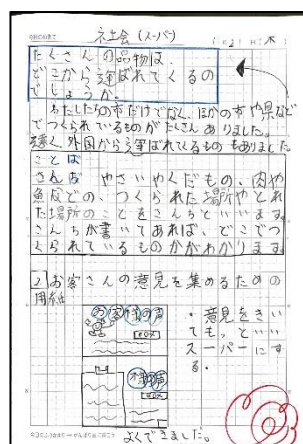 今日のめあて
社会(スーパー)
たくさんの品物は、
どこから運ばれてくるの
でしょうか。
わたしたちの市だけでなく、ほかの市や県など
でつくられているものがたくさんありました。
外国から運ばれてくるものもありました
ことば
さんち やさいやくだもの、肉や
魚などの、つくられた場所やとれ
た場所のことをさんちといいます。
さんちが書いてあれば、どこでつ
くられているものかがわかります
2 お客さんの意見を集めるための
用紙
お客様の声
・意見をきい
てもっといい
スーパーにす
る。
お客様の声
よくできました。